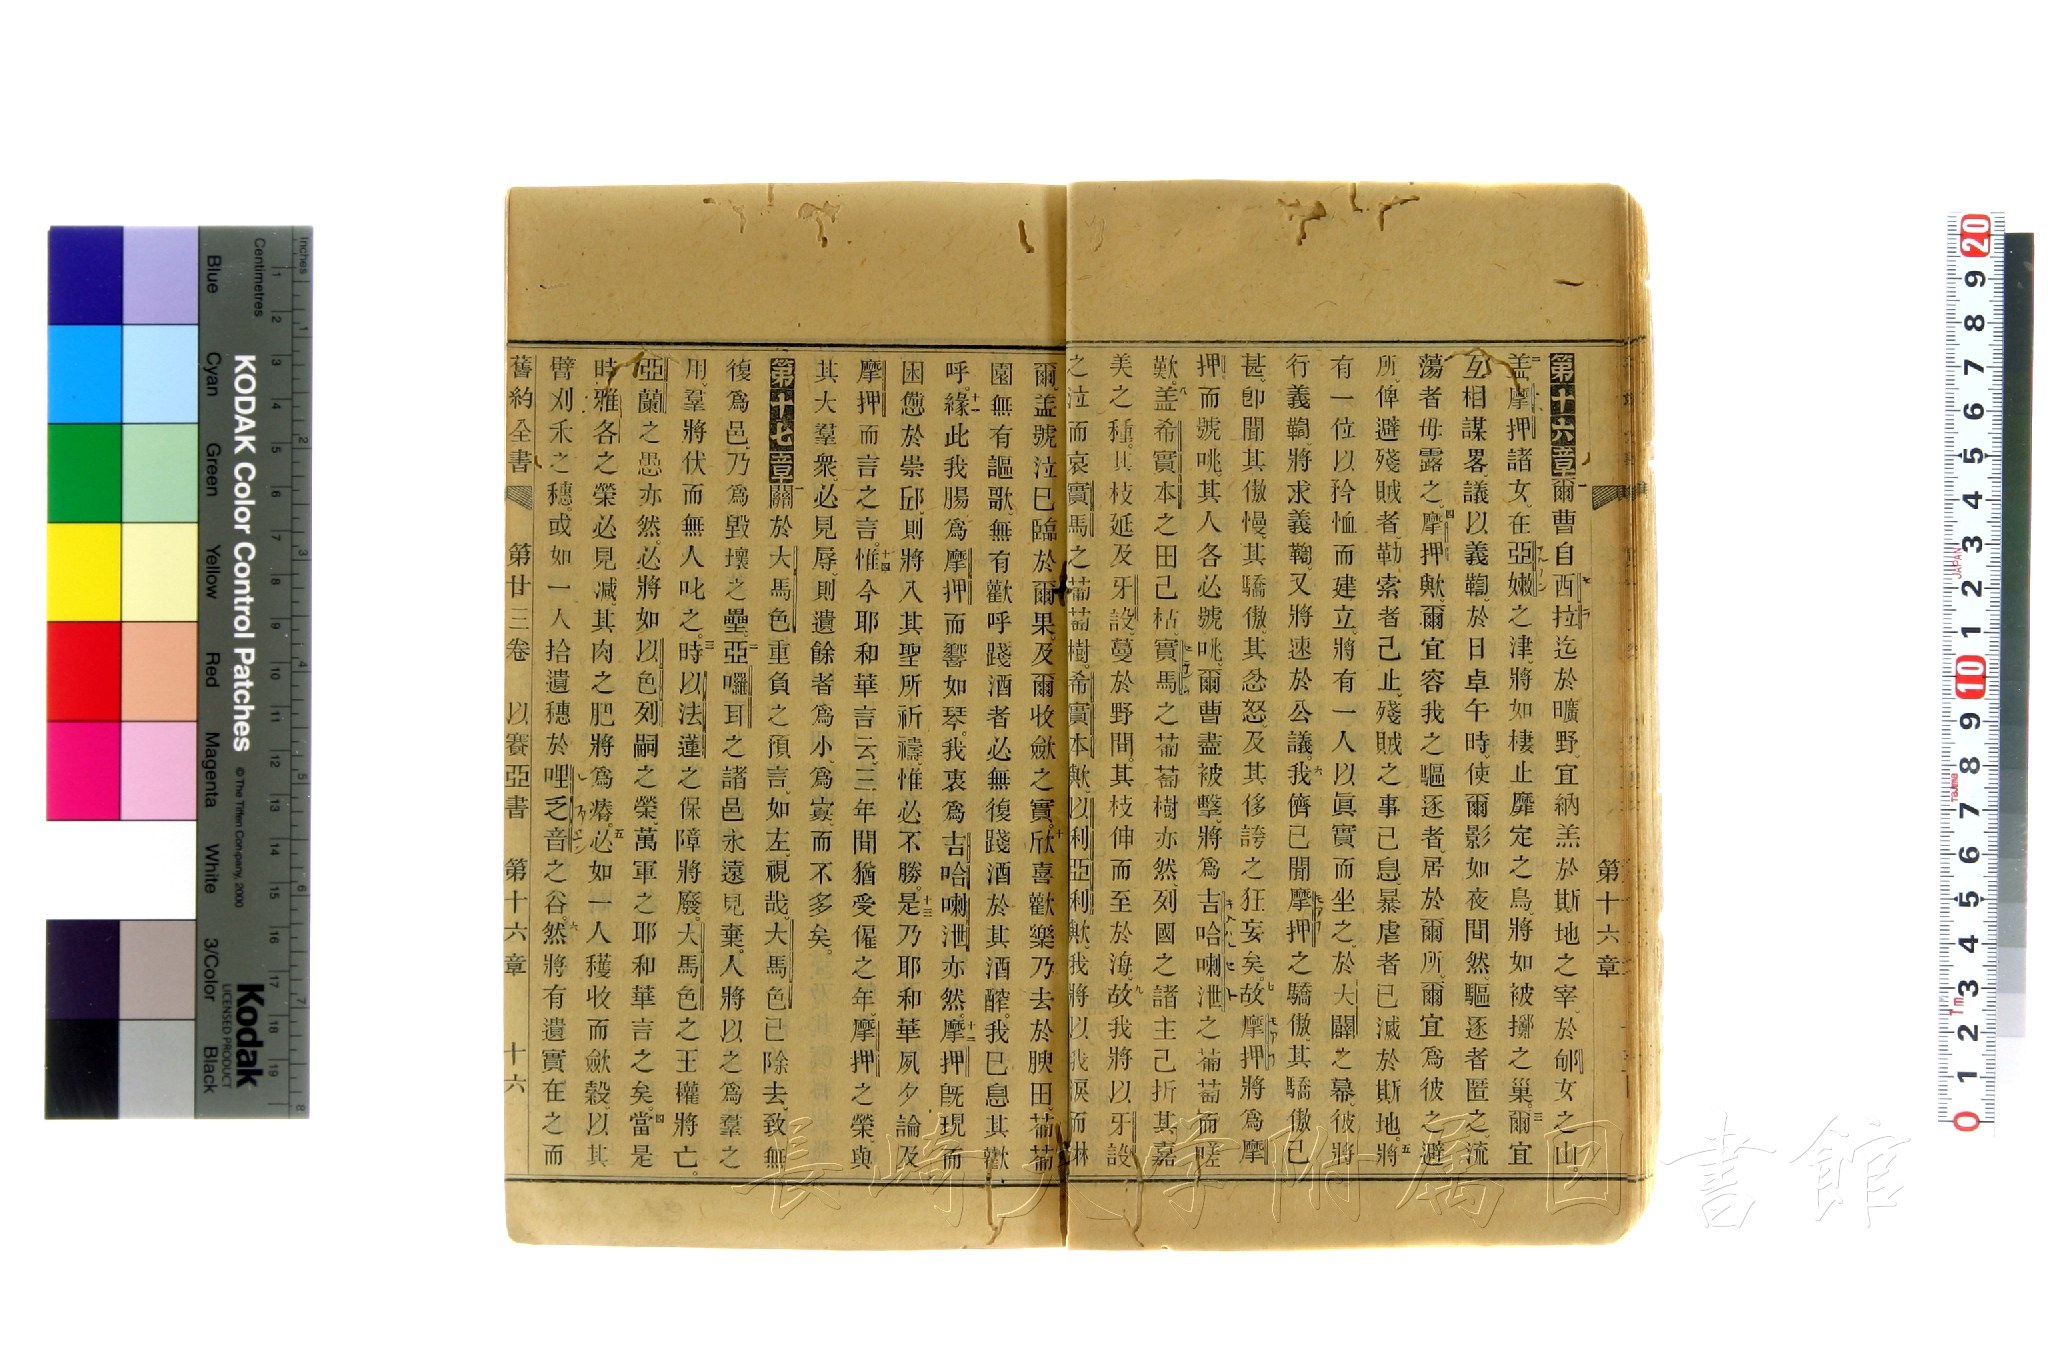 第十六章
第十六章爾曹自西拉迄於曠野宜納羔於斯地之宰於郇女之山
盖摩押諸女在亞嫩之津將如棲止靡定之鳥將如被擲之巢爾宜
互相謀畧議以義鞫於日卓午時使爾影如夜間然驅逐者匿之流
蕩者毋露之摩押歟爾宜容我之驅逐者居於爾所爾宜爲彼之避
所俾避殘賊者勒索者己止殘賊之事己息暴虐者已滅於斯地將
有一位以矜恤而建立將有一人以眞實而坐之於大闢之幕彼將
行義鞫將求義鞫又將速於公議我儕已聞摩押之驕傲其驕傲已
甚卽聞其傲慢其驕傲其忿怒及其侈誇之狂妄矣故摩押將爲摩
押而號咷其人各必號咷爾曹盡被擊將爲吉哈喇泄之葡萄而嗟
歎盖希實本之田己枯實馬之葡萄樹亦然列國之諸主己折其嘉
美之種其枝延及牙設蔓於野間其枝伸而至於海故我將以牙設
之泣而哀實馬之葡萄樹希實本歟以利亞利歟我將以我淚而淋
爾盖號泣已臨於爾果及爾收歛之實欣喜歡樂乃去於腴田葡萄
園無有謳歌無有歡呼踐酒者必無復踐酒於其酒醡我已息其歡
呼緣此我腸爲摩押而響如琴我衷爲吉哈喇泄亦然摩押旣現而
困憊於崇邱則將入其聖所祈禱惟必不勝是乃耶和華夙夕論及
摩押而言之言惟今耶和華言云三年間猶受僱之年摩押之榮與
其大羣衆必見辱則遺餘者爲小爲寡而不多矣
第十七章關於大馬色重負之預言如左視哉大馬色已除去致無
復爲邑乃爲毀壞之壘亞囉耳之諸邑永遠見棄人將以之爲羣之
用羣將伏而無人叱之時以法蓮之保障將廢大馬色之王權將亡
亞蘭之愚亦然必將如以色列嗣之榮萬軍之耶和華言之矣當是
時雅各之榮必見減其肉之肥將爲瘠必如一人穫收而歛穀以其
臂刈禾之穗或如一人拾遺穗於哩乏音之谷然將有遺實在之而
舊約全書 第廿三卷 以賽亞書 第十六章 十六
長崎大学附属図書館
KODAK Color Control Patches
© The Tiffen Company, 2000
Kodak
LICENSED PRODUCT
Inches
Centimetres
Blue
Cyan
Green
Yellow
Red
Magenta
White
3/Color
Black
JAPAN
Tajima